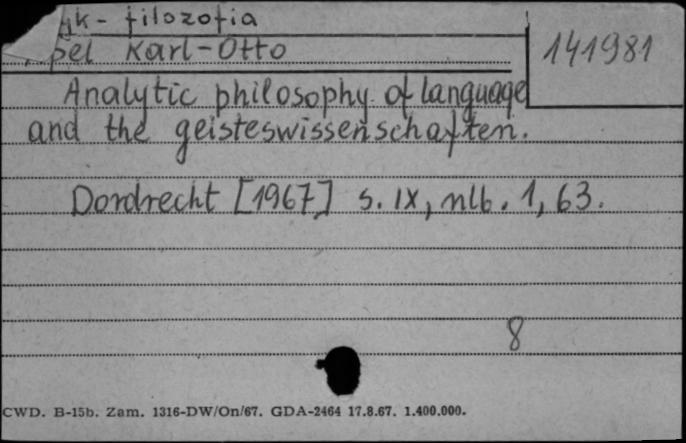 filozofia
Karl-Otto
141981
Analytic philosophy of language
and the geisteswissenschaften.
Dordrecht [1967] s. IX, nlb. 1, 63.
8
CWD. B-15b. Zam. 1316-DW/On/67. GDA-2464 17.8.67. 1.400.000.